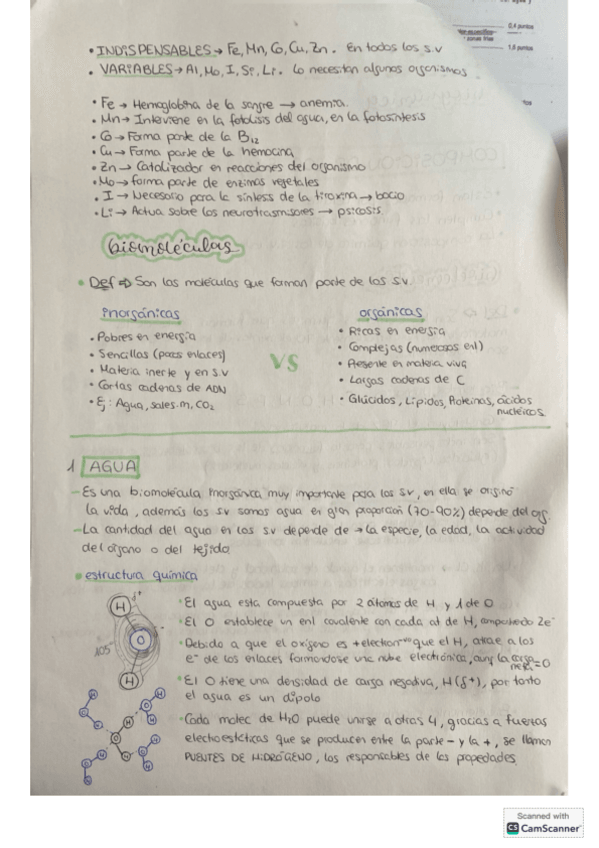 0,4 puntos
1,6 puntos
• INDISPENSABLES → Fe, Mn, Co, Cu, Zn. En todos los s.v
• VARIABLES → Al, Mo, I, Si, Li. Lo necesitan algunos organismos
• Fe → Hemoglobina de la sangre → anemia.
• Mn → Interviene en la fotolisis del agua, en la fotosíntesis
• Co → Forma parte de la B12
• Cu → Forma parte de la hemocina
• Zn → Catalizador en reacciones del organismo
• Mo → forma parte de enzimas vegetales
• I → Necesario para la síntesis de la tiroxina → bocio
• Li → Actua sobre los neurotrasmisores → psicosis
biomoléculas
• Def ⇒ Son las moléculas que forman parte de los s.v
inorgánicas
• Pobres en energía
• Sencillas (pocos enlaces)
• Materia inerte y en s.v
• Cortas cadenas de ADN
• Ej: Agua, sales.m, CO2
VS
orgánicas
• Ricas en energía
• Complejas (numerosos enl)
• Presente en materia viva
• Largas cadenas de C
• Glúcidos, Lípidos, Proteínas, ácidos
nucleicos
1 AGUA
- Es una biomolécula inorgánica muy importante para los sv, en ella se originó
la vida, además los sv somos agua en gran proporción (70-90%) depende del org.
- La cantidad del agua en los sv depende de → la especie, la edad, la actividad
del órgano o del tejido
• estructura química
H δ+
O
105°
H
• El agua esta compuesta por 2 átomos de H y 1 de O
• El O establece un enl covalente con cada at de H, compartiendo 2e-
• Debido a que el oxígeno es + electron que el H, atrae a los
e- de los enlaces formandose una nube electrónica, aunq la carga =0
• El O tiene una densidad de carga negativa, H(δ+), por tanto
el agua es un dipolo
• Cada molec de H2O puede unirse a otras 4, gracias a fuerzas
electroestéticas que se producen entre la parte - y la +, se llaman
PUENTES DE HIDRÓGENO, los responsables de las propiedades
Scanned with
CS CamScanner